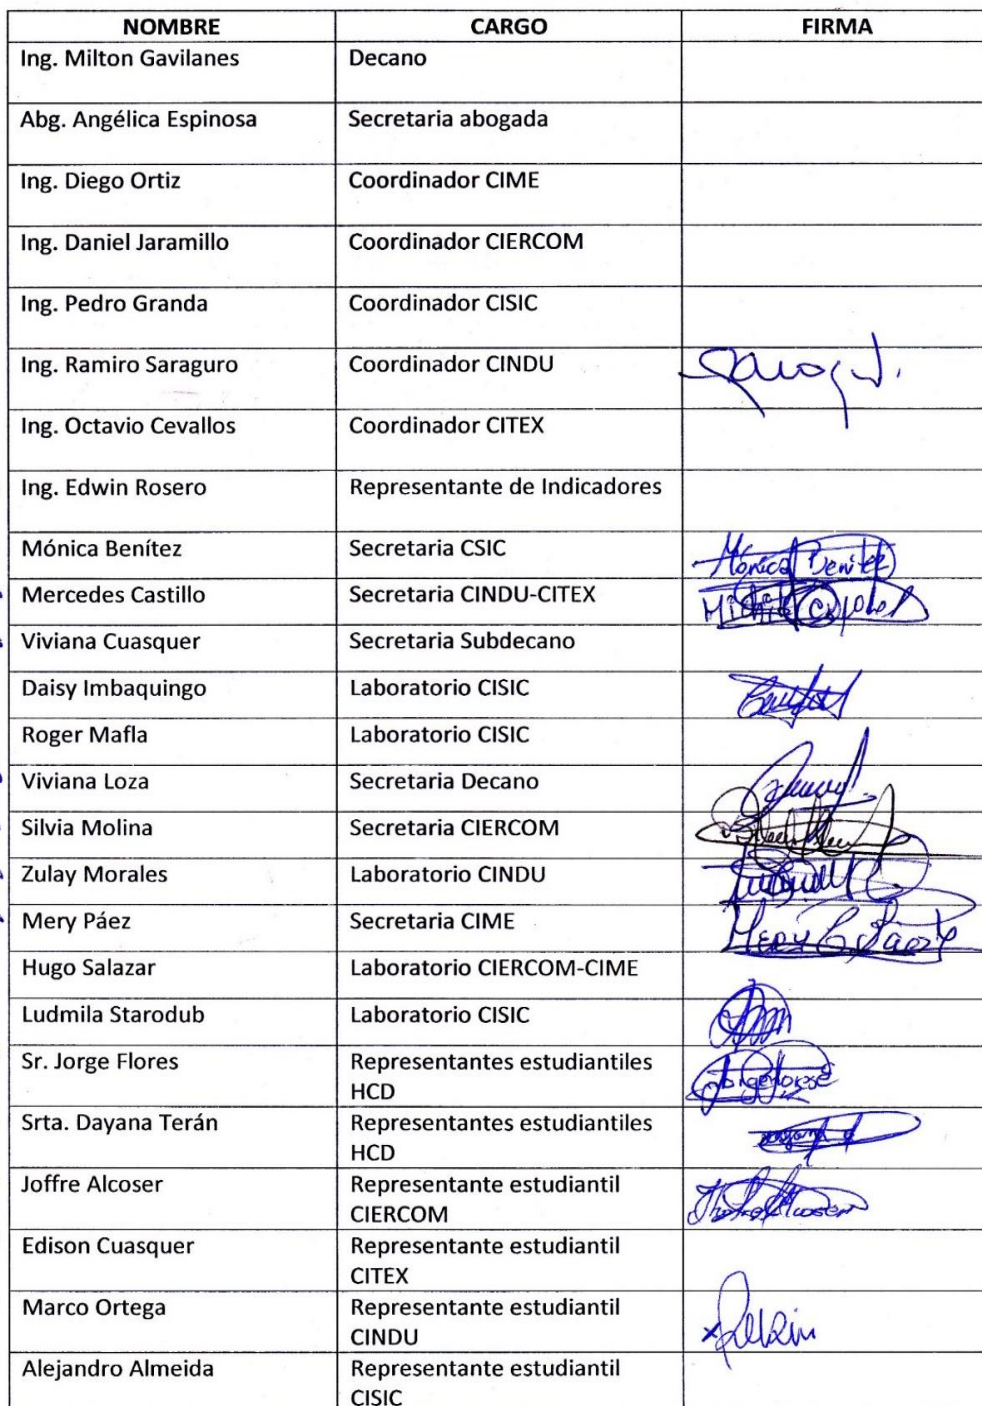 NOMBRE CARGO FIRMA
Ing. Milton Gavilanes Decano
Abg. Angélica Espinosa Secretaria abogada
Ing. Diego Ortiz Coordinador CIME
Ing. Daniel Jaramillo Coordinador CIERCOM
Ing. Pedro Granda Coordinador CISIC
Ing. Ramiro Saraguro Coordinador CINDU
Ing. Octavio Cevallos Coordinador CITEX
Ing. Edwin Rosero Representante de Indicadores
Mónica Benítez Secretaria CSIC Mónica Benítez
Mercedes Castillo Secretaria CINDU-CITEX
Viviana Cuasquer Secretaria Subdecano
Daisy Imbaquingo Laboratorio CISIC
Roger Mafla Laboratorio CISIC
Viviana Loza Secretaria Decano
Silvia Molina Secretaria CIERCOM
Zulay Morales Laboratorio CINDU
Mery Páez Secretaria CIME
Hugo Salazar Laboratorio CIERCOM-CIME
Ludmila Starodub Laboratorio CISIC
Sr. Jorge Flores Representantes estudiantiles
HCD
Srta. Dayana Terán Representantes estudiantiles
HCD
Joffre Alcoser Representante estudiantil
CIERCOM
Edison Cuasquer Representante estudiantil
CITEX
Marco Ortega Representante estudiantil
CINDU
Alejandro Almeida Representante estudiantil
CISIC